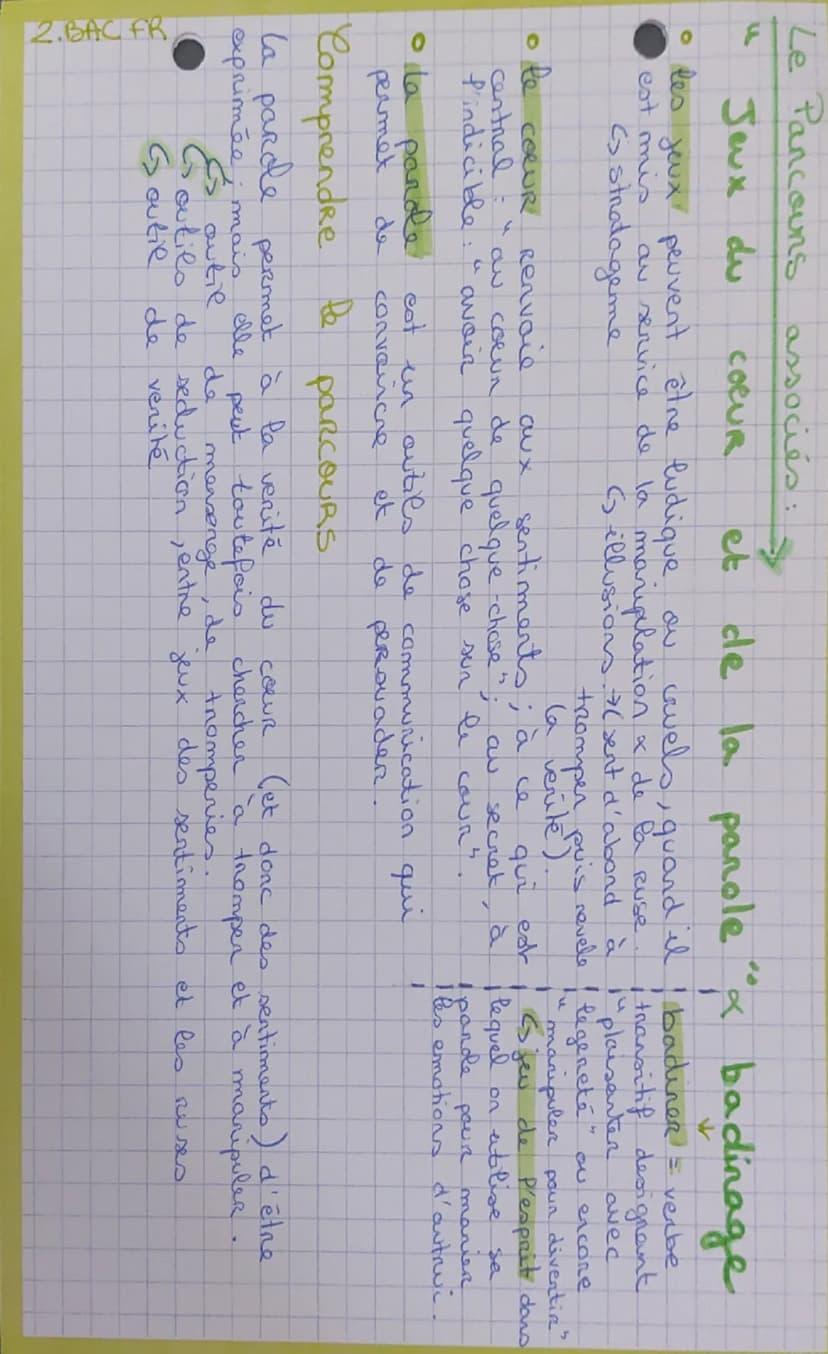 Le Parcours associés :
" Jeux du coeur et de la parole " & badinage
• les jeux peuvent être ludique ou cruels, quand il
est mis au service de la manipulation & de la ruse.
↳ stratageme ↳ illusions → (sert d'abord à
tromper puis revele
la verité).
• le coeur renvoie aux sentiments ; à ce qui est
central : " au coeur de quelque-chose" ; au secret, à
l'indicible : " avoir quelque chose sur le coeur".
• la parole est un outils de communication qui
permet de convaincre et de persuader.
badiner = verbe
transitif designant
" plaisanter avec
legereté " ou encore
" manipuler pour divertir "
↳ jeu de l'esprit dans
lequel on utilise sa
parole pour manier
les emotions d'autrui.
Comprendre le parcours
la parole permet à la verité du coeur (et donc des sentiments) d'être
exprimée ; mais elle peut toutefois chercher à tromper et à manipuler.
↳ outil de mensonge, de tromperies.
↳ outils de seduction, entre jeux des sentiments et les ruses
↳ outil de verité
2.BAC FR